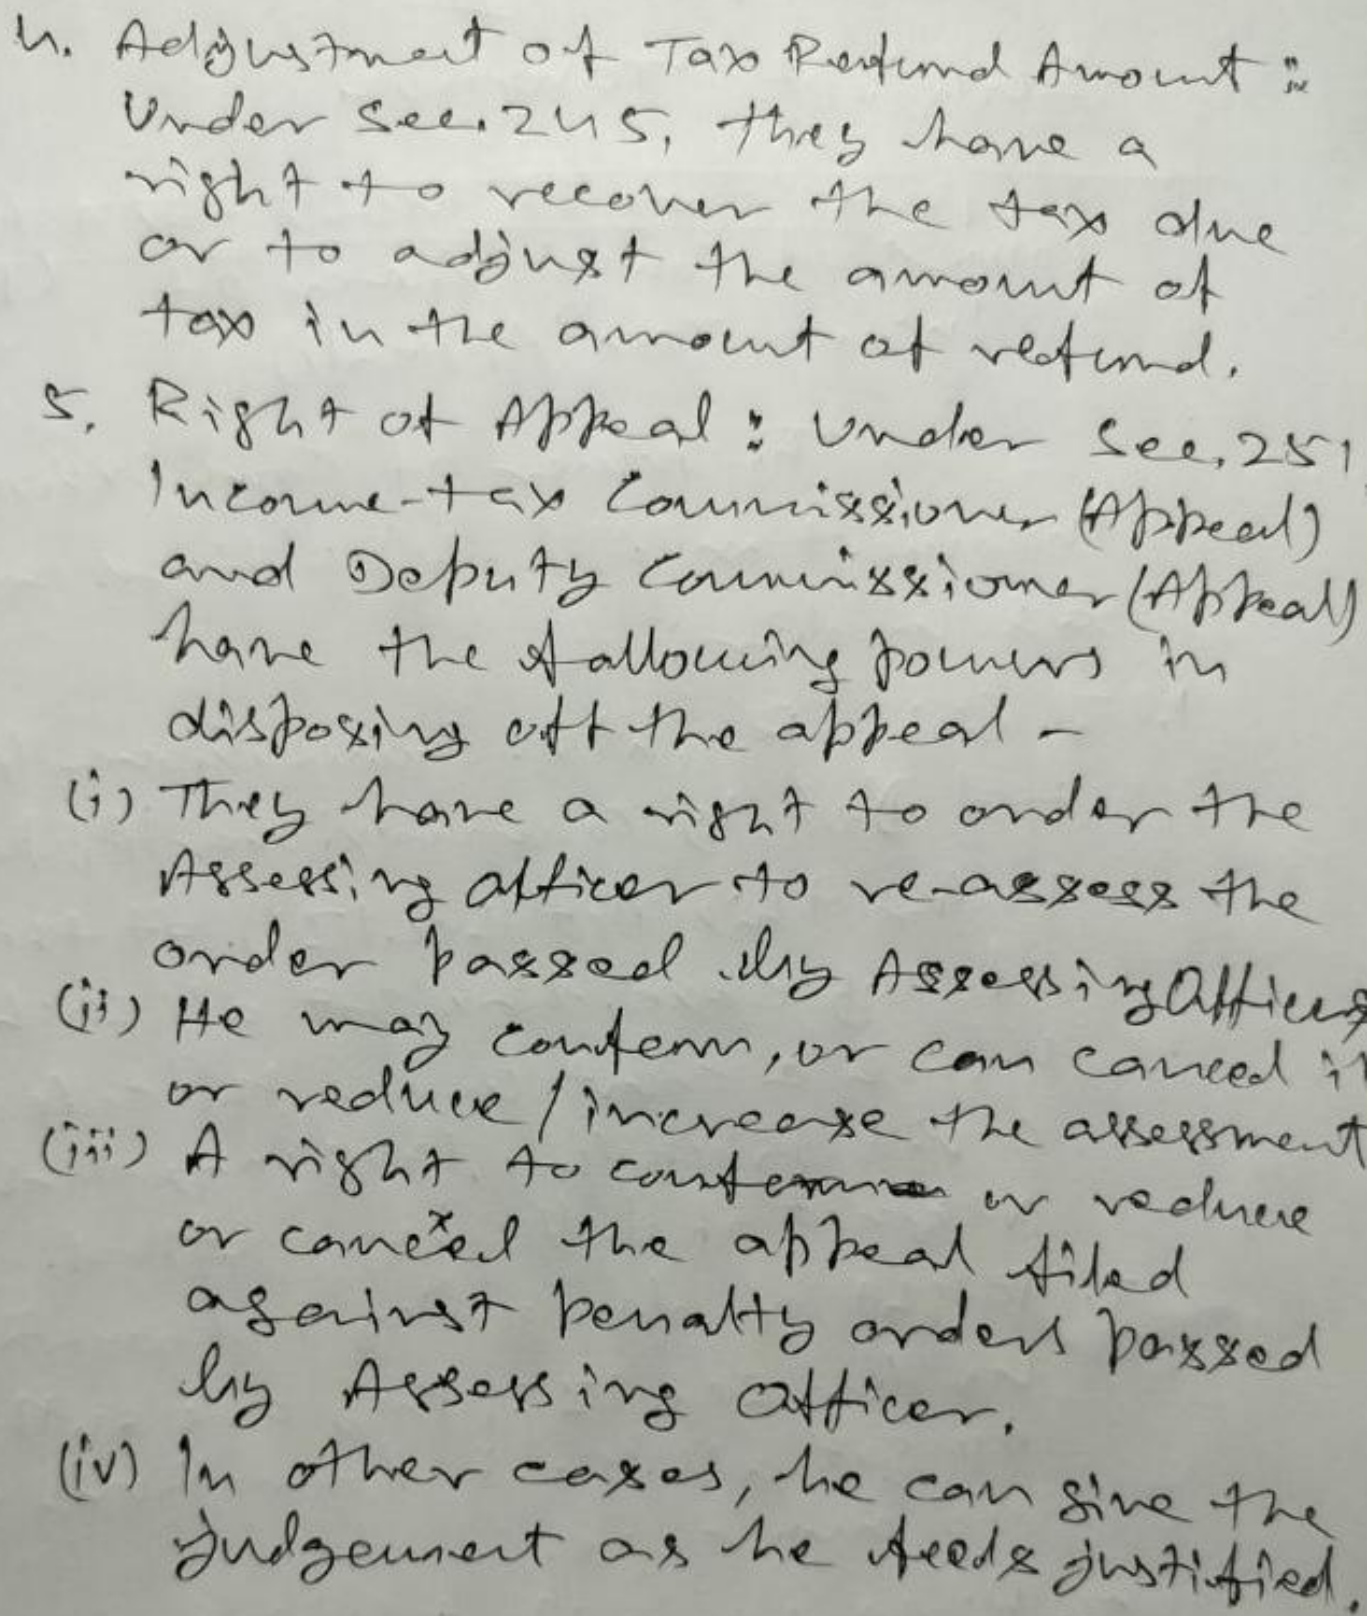 4. Adjustment of Tax Refund Amount :-
Under Sec. 245, they have a
right to recover the tax due
or to adjust the amount of
tax in the amount of refund.
5. Right of Appeal : Under Sec. 251,
Income-tax Commissioner (Appeal)
and Deputy Commissioner (Appeal)
have the following powers in
disposing off the appeal -
(i) They have a right to order the
Assessing officer to re-assess the
order passed by Assessing Officer,
(ii) He may confirm, or can cancel it
or reduce / increase the assessment
(iii) A right to confirm or reduce
or cancel the appeal filed
against penalty orders passed
by Assessing Officer.
(iv) In other cases, he can give the
judgement as he feeds justified.